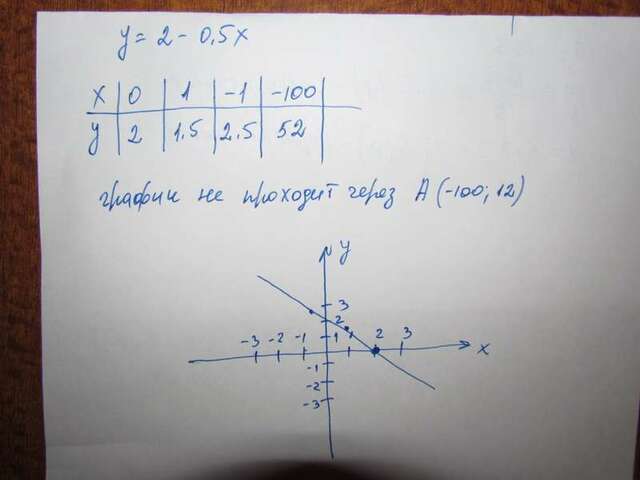 y = 2 - 0,5x
x | 0 | 1 | -1 | -100
y | 2 | 1.5 | 2.5 | 52
график не проходит через A (-100; 12)
y
3
2
-3 -2 -1 1 1 2 3
x
-1
-2
-3